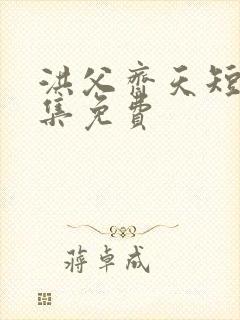 洪父齊天短
集免費
蔣卓成